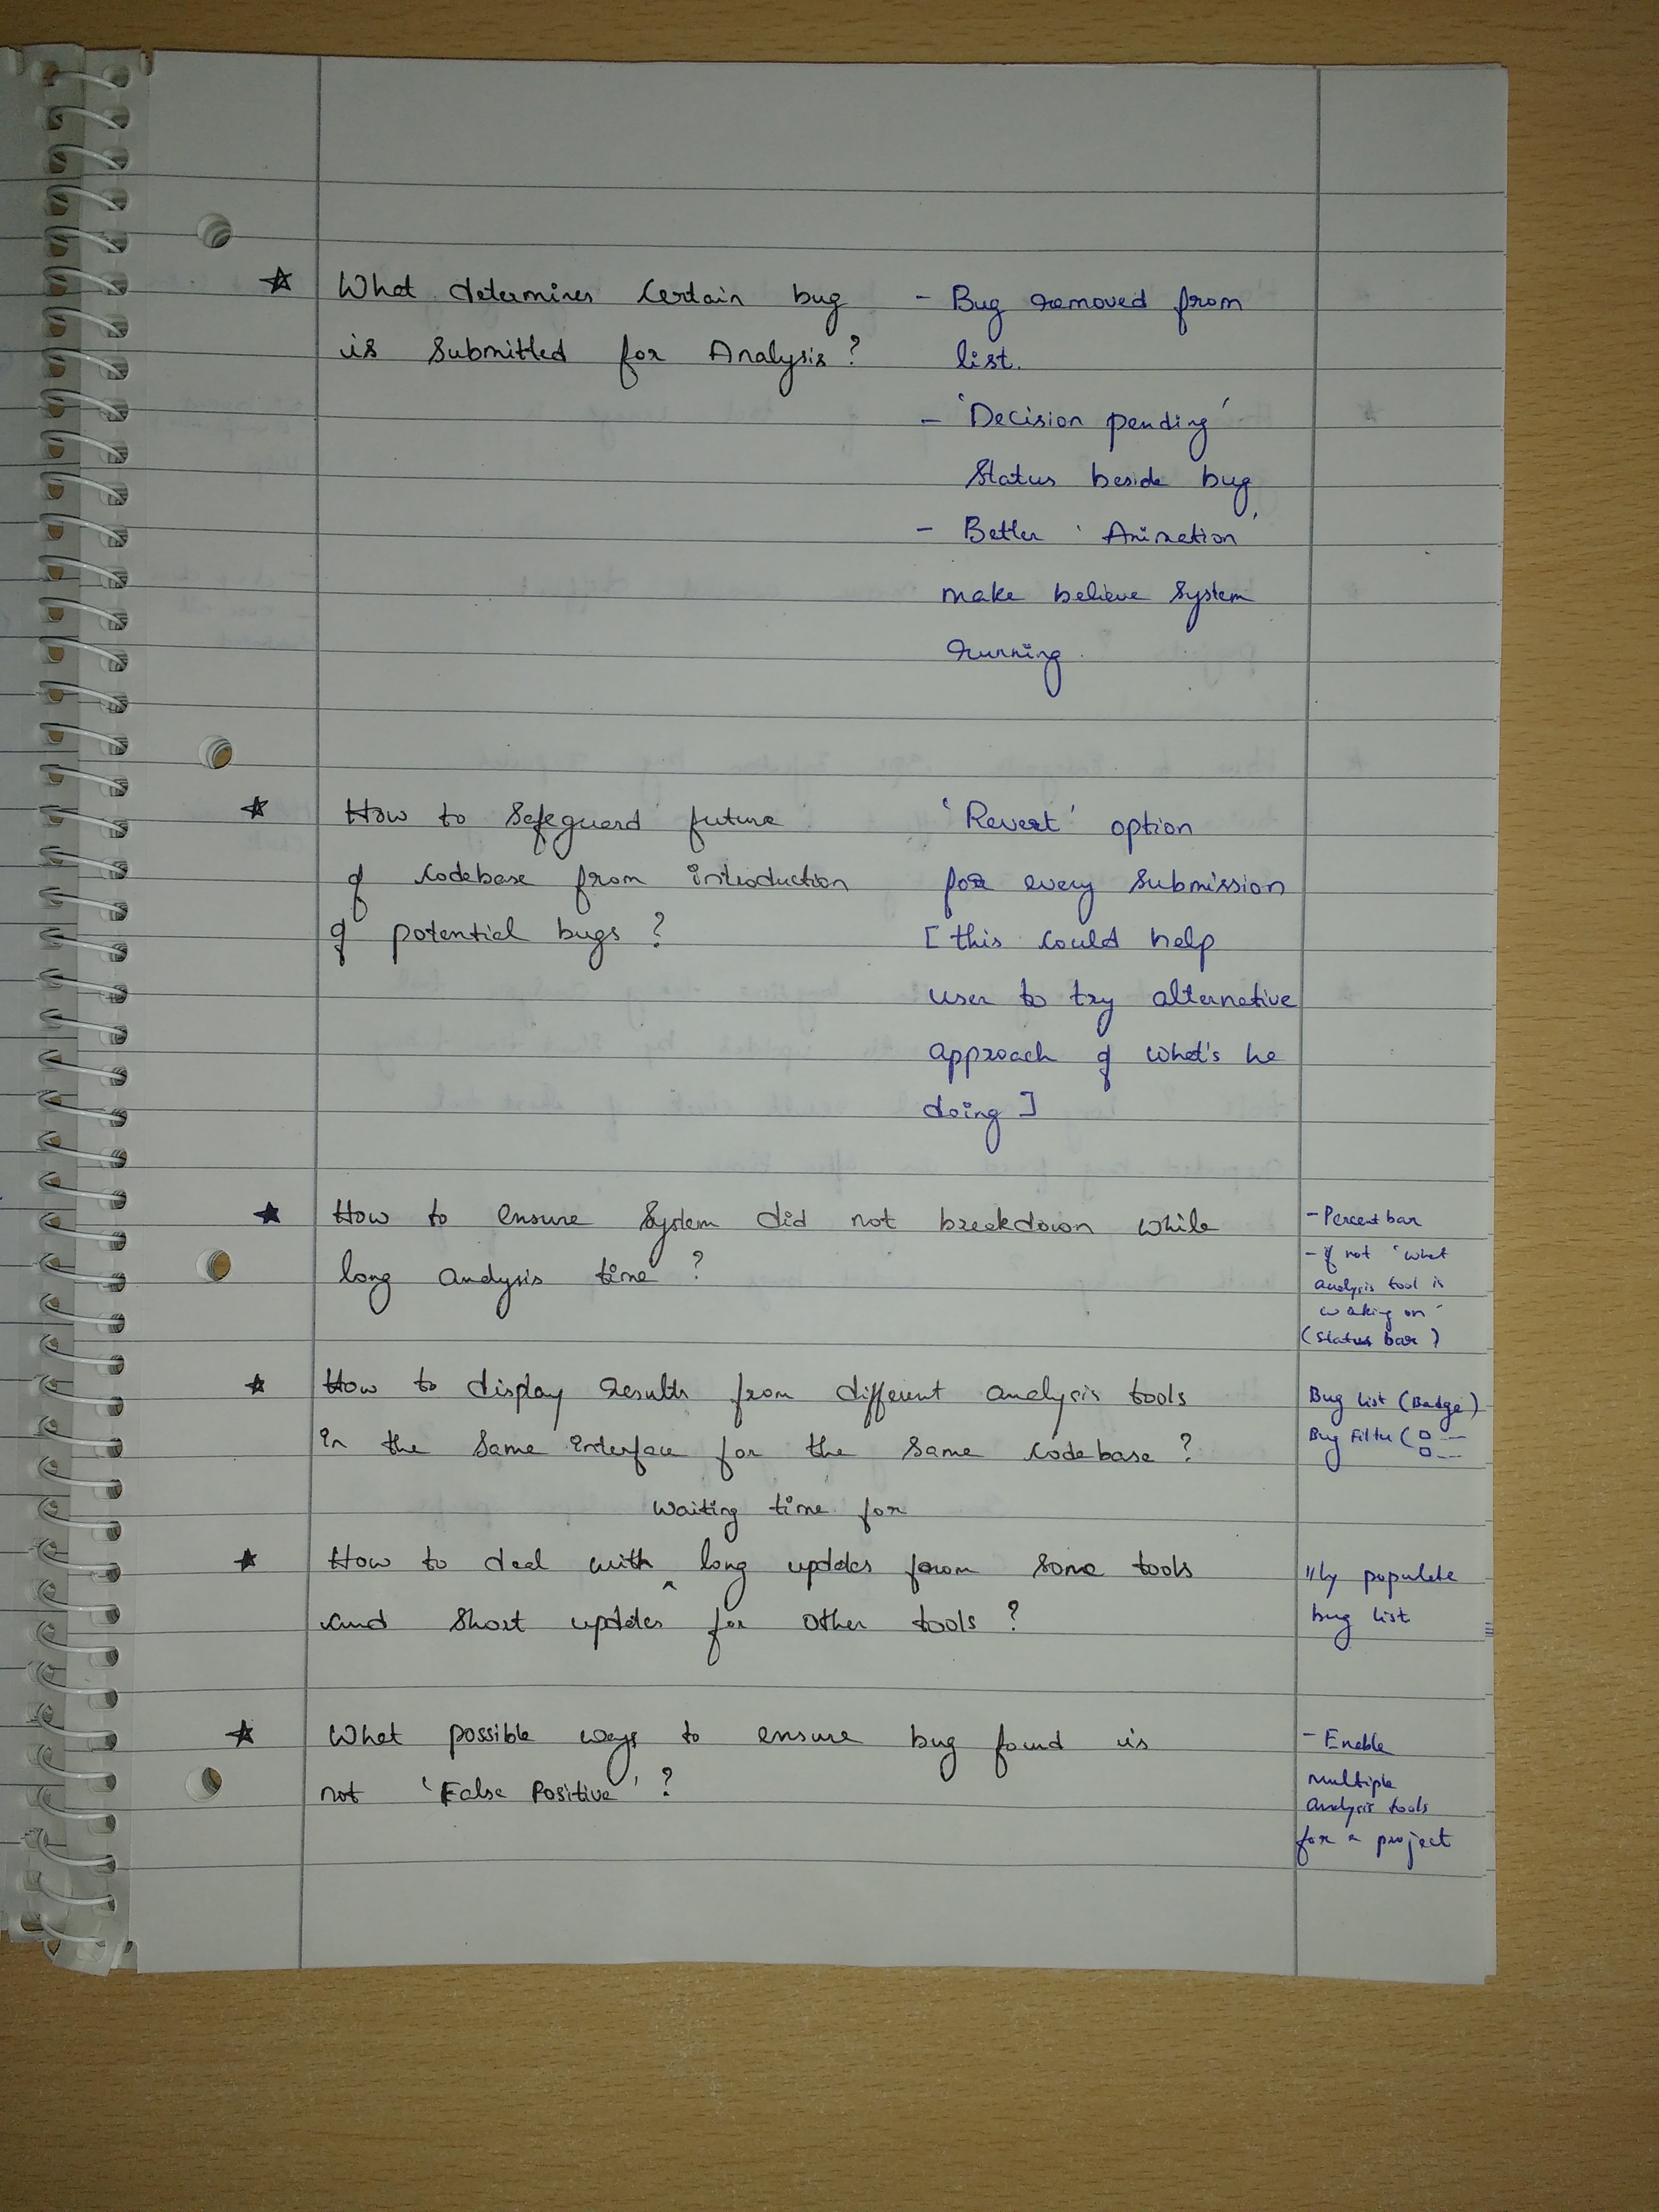 ☆ What determines certain bug
is submitted for Analysis?
- Bug removed from
list.
- 'Decision pending'
status beside bug
- Better 'Animation'
make believe system
running.
★ How to safeguard future
of codebase from introduction
of potential bugs?
'Revert' option
for every submission
[this could help
user to try alternative
approach of what's he
doing]
★ How to ensure system did not breakdown while
long analysis time?
- Percent bar
- if not 'what
analysis tool is
working on'
(status bar)
★ How to display results from different analysis tools
in the same interface for the same codebase?
Bug list (Badge)
Bug Filter (
waiting time for
★ How to deal with ^ long updates from some tools
and short updates for other tools?
"ly populate
bug list
★ What possible ways to ensure bug found is
not 'False Positive'?
- Enable
multiple
analysis tools
for a project